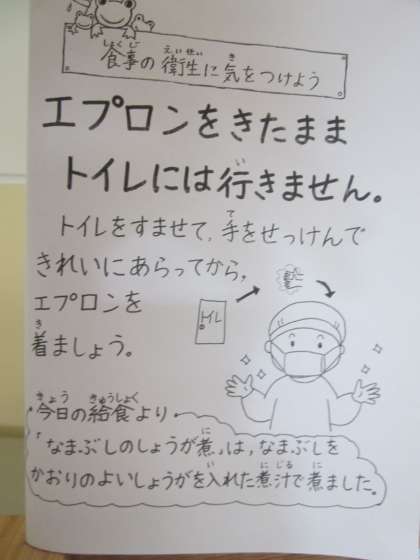 食事の衛生に気をつけよう
エプロンをきたまま
トイレには行きません。
トイレをすませて，手をせっけんで
きれいにあらってから，
エプロンを
着ましょう。
トイレ
今日の給食より
「なまぶしのしょうが煮」は，なまぶしを
かおりのよいしょうがを入れた煮汁で煮ました。